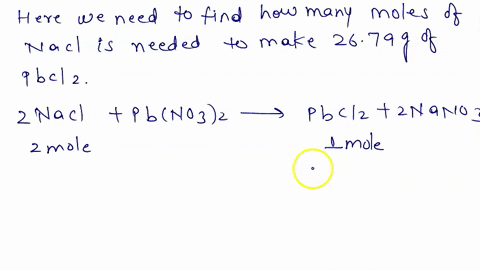 Here we need to find how many moles of
Nacl is needed to make 26.79g of
pbcl2.
2Nacl + Pb(NO3)2 ⟶ Pbcl2 + 2NaNO3
2 mole 1 mole